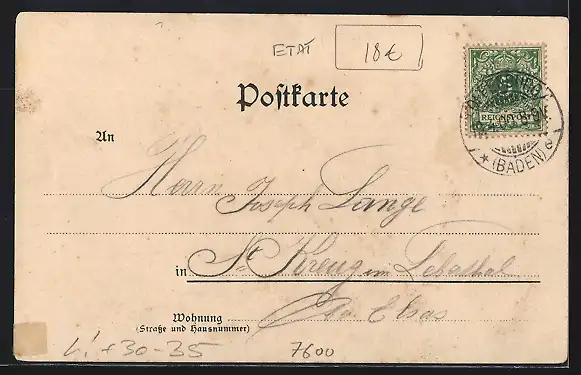 ETAT
18€
Postkarte
REICHSPOST
* (BADEN)
An
Herrn Joseph Lange
in St Kreuz im Leberthal
Wohnung
(Straße und Hausnummer)
Elsas
+30-35
7600